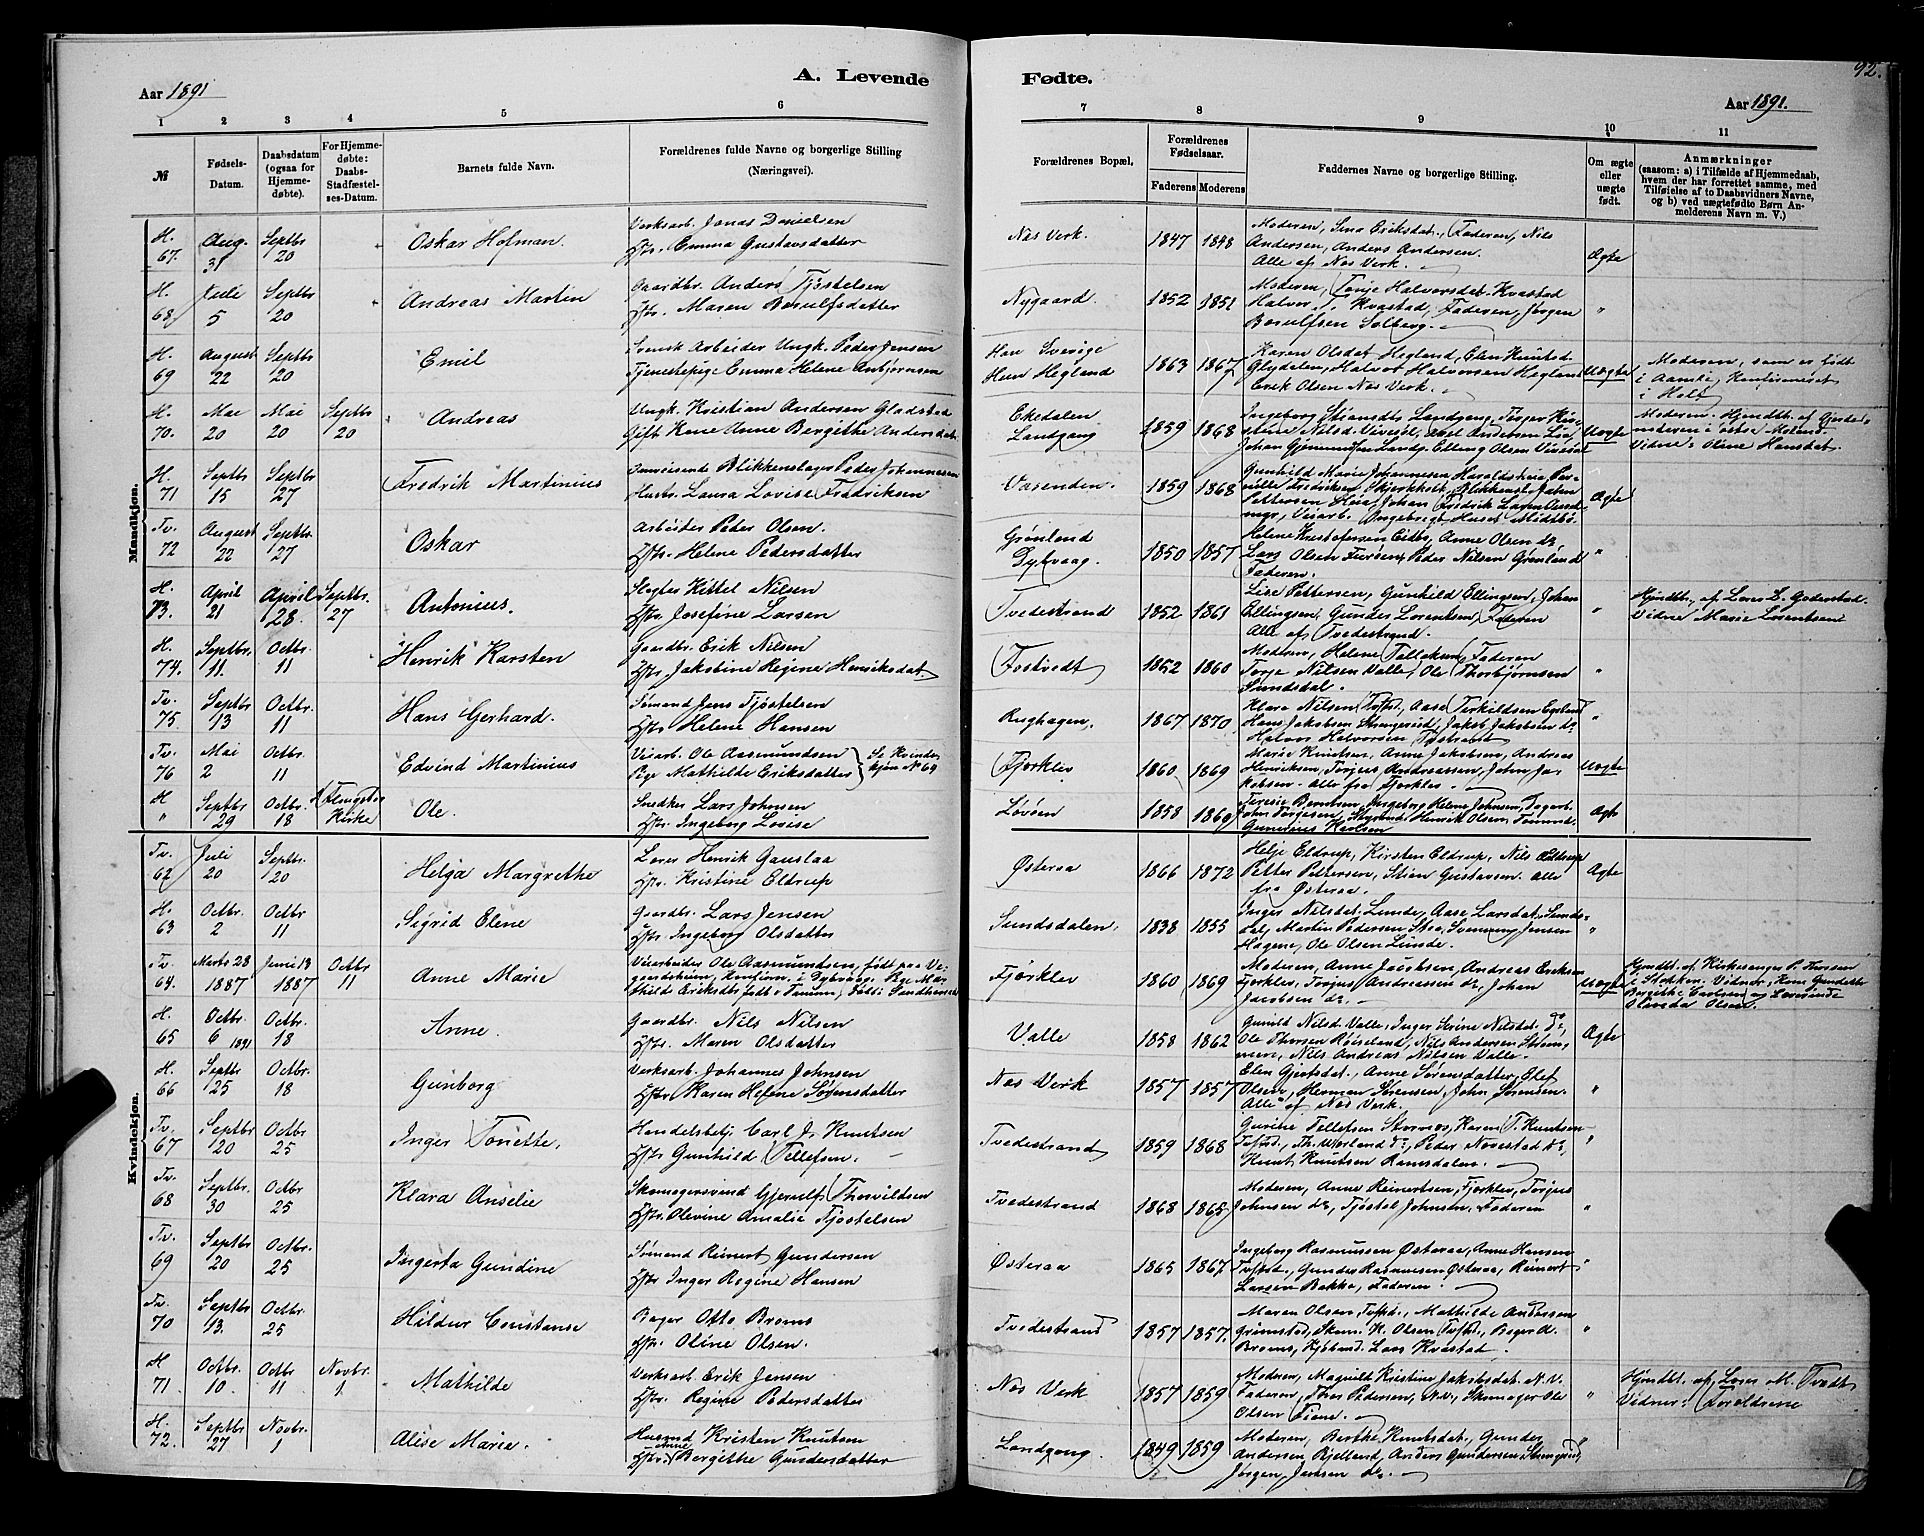 92.
A. Levende Fødte.
Aar 1891
Aar 1891.
1 2 3 4 5 6 7 8 9 10 11
№
Fødsels-Datum.
Daabsdatum (ogsaa for Hjemme-døbte).
For Hjemme-døbte: Daabs-Stadfæstel-ses-Datum.
Barnets fulde Navn.
Forældrenes fulde Navne og borgerlige Stilling (Næringsvei).
Forældrenes Bopæl.
Forældrenes Fødselsaar.
Faderens Moderens
Faddernes Navne og borgerlige Stilling.
Om ægte eller uægte født.
Anmærkninger
(saasom: a) i Tilfælde af Hjemmedaab,
hvem der har forrettet samme, med
Tilføielse af to Daabsvidners Navne,
og b) ved uægtefødte Børn An-
melderens Navn m. V.)
Mandkjøn.
H. 67. Aug. 31 Septbr 20 Oskar Hofman. Verksarb. Jonas Danielsen
Hstr. Emma Gustavsdatter Næs Verk. 1847 1848 Moderen, Sina Eriksdat., Faderen, Nils
Andersen, Anders Andersen.
Alle af Næs Verk. Ægte
H. 68 Juli 5 Septbr 20 Andreas Martin Gaardbr. Anders Tjøstelsen
Hstr. Maren Bosulfsdatter Nygaard. 1852 1851 Moderen, Tonje Halvorsdat. Kvastad
Halvor T. Kvastad, Faderen, Jørgen
Bosulfsen Solberg. "
H. 69 August 22 Septbr 20 Emil Svensk Arbeider Ungk. Peder Jensen
Tjenestepige Emma Helene Asbjørnsen Han Sverige
Hun Hegland 1863 1867 Karen Olsdat Hegland, Elen Knutsd.
Glydalen, Halvor Halvorsen Hegland
Erik Olsen Næs Verk. Uægte Moderen, som er født
i Aamli, Konfirmeret
i Holt
H. 70. Mai 20 Mai 20 Septbr 20 Andreas Ungk. Kristian Andersen Gladstad
Gift Kone Anne Bergithe Andersdat. Ekedalen
Landgang 1859 1868 Uægte Moderen. Hjmdbt. af
Vidne: Oline Hansdat.
H. 71 Septbr 15 Septbr 27 Fredrik Martinius Omreisende Blikkenslager Peder Johannesen
Hustr. Laura Lovise Fredriksen Vasenden. 1859 1868 Gunhild Marie Johannesen Ægte
Tv. 72 August 22 Septbr. 27 Oskar Arbeider Peder Olsen.
Hstr. Helene Pedersdatter Grønland
Dybvaag. 1850 1857 Helene Kristofersen Eidbo, Anne Olsen do
Lars Olsen Furøen, Peder Nilsen Grønland
Faderen. "
H. 73. April 21 April 28 Septbr. 27 Antonius. Slagter Kittel Nilsen
Hstr. Josefine Larsen Tvedestrand 1852 1861 Lise Pettersen, Gunhild Ellingsen, Johan
Ellingsen, Gunder Lorentsen, Faderen
Alle af Tvedestrand. " Hjmdbt. af Lærer L. Goderstad.
Vidne Marie Lorentsen
H. 74. Septbr. 11. Octbr. 11 Henrik Karsten Gaardbr. Erik Nilsen
Hstr. Jakobine Regine Henriksdat. Fostvedt 1852 1860 Moderen, Helene Tellefsen, Faderen
Torje Nilsen Valle, Ole Thorbjørnsen
Sundsdal. "
Tv. 75 Septbr 13 Octbr. 11 Hans Gerhard. Sømand Jens Tjøstelsen
Hstr. Helene Hansen Rughagen. 1867 1870 Klara Nilsen Tvstrd, Aase Terkildsen
Hans Jakobsen Strengereid, Jakob Jakobsen do
Halvor Halvorsen Tvstrand "
Tv. 76 Mai 2 Octbr. 11 Edvind Martinius Veiarb. Ole Aasmundsen
Pige Mathilde Eriksdatter } Se Kvinde-
kjøn No 64 Fjorklev 1860 1869 Marie Knutsen, Anne Jakobsen, Andreas
Henriksen, Torjus Andreassen, John Ja-
kobsen. Alle fra Fjorklev. Uægte
H " Septbr 29 Octbr. 18 Flongstø
Kirke Ole. Snedker Lars Johnsen
Hstr. Ingeborg Lovise Løvøen 1858 1860 Ægte
Kvindekjøn.
Tv. 62 Juli 20 Septbr. 20 Helga Margrethe Lærer Henrik Gauslaa
Hstr. Kristine Eldrup Østeraa 1866 1872 Helje Eldrup, Kirsten Eldrup, Nils Eldrup
Petter Pettersen, Stian Gustavsen. Alle
fra Østeraa. Ægte
H. 63 Octbr. 2 Octbr 11 Sigrid Elene Gaardbr. Lars Jensen
Hstr. Ingeborg Olsdatter Sundsdalen. 1838 1855 Inger Nilsdat. Lunde, Aase Larsdat. Sunds-
dal, Martin Pedersen Stea, Svenning Jensen
Hagene, Ole Olsen Lunde. "
Tv. 64. Marts 28 1887 Juni 18 1887 Octbr 11 Anne Marie Veiarbeider Ole Aasmundsen, født paa Ve-
gaardsheien, Konfirm. i Dybvaag. Pige Mat-
hilde Eriksdtr. Fjørklev 1860 1869 Moderen, Anne Jacobsen, Andreas Eriksen
Fjorklev, Torjus Andreassen do, Johan
Jacobsen do. Uægte Hjmdbt. af Kirkesanger P. Hansen
i Stokken. Vidner,
H. 65 Octbr. 6 1891 Octbr. 18 Anne. Gaardbr. Nils Nilsen
Hstr. Maren Olsdatter Valle 1858 1862 Gunild Nilsd. Valle, Inger Serine Nilsdat. do,
Ole Thorsen Røiseland, Nils Andersen Strøm-
men, Nils Andreas Nilsen Valle. Ægte
H. 66 Septbr 25 Octbr. 18 Gunborg Verksarb. Johannes Johnsen
Hstr Karen Helene Sørensdatter Næs Verk 1857 1857 Elen Gjertsdat., Anne Sørensdatter, Olef
Olsen, Herman Sørensen, John Sørensen.
Alle af Næs Verk. "
Tv. 67 Septbr 20 Octbr. 25 Inger Tonette. Handelsbetj. Carl J. Knutsen
Hstr Gunhild Tellefsen. Tvedestrand 1859 1868 Gurithe Tellefsen, Karen T. Knutsen
Tvstrd., Th. Morland do, Peder Novestad do,
Knut Knutsen Ramsdalen. "
Tv. 68 Septbr. 30 Octbr 25 Klara Anselie Skomagersvend Gjerulf Thorvildsen
Hstr. Olevine Amalie Tjøstelsen Tvedestrand 1868 1865 Moderen, Anne Reinertsen, Fjorklev, Torjus
Johnsen do, Tjøstel Johnsen, Faderen "
Tv. 69 Septbr 20 Octbr. 25 Ingerta Gundine Sømand Reinert Gundersen
Hstr Inger Regine Hansen Østeraa 1865 1867 Ingeborg Rasmussen Østeraa, Anne Hansen
Tvstrd., Gunder Rasmussen Østeraa, Reinert
Larsen Bakka, Faderen. "
Tv. 70 Septbr 13. Octbr. 25 Hildur Constanse Bager Otto Broms
Hstr. Oline Olsen. Tvedestrand 1857 1857. Maren Olsen, Tvstrd., Mathilde Andersen
Grimstad, Skom. K. Olsen Tvstrd., Bager A.
Broms, Kjøbmd. Lars Kvastad. "
H 71 Octbr. 10. Octbr. 11 Novbr. 1. Mathilde Verksarb. Erik Jensen
Hstr. Regine Pedersdatter Næs Verk 1857 1859 Moderen, Magnild Kristine Jakobsdat. N.V.
Faderen, Thor Pedersen, N.V., Skomager Ole
Olsen Fiane. " Hjmdbt. af Lærer M. Tvedt
Vidner: Forældrene
H. 72. Septbr 27 Novbr. 1 Alise Marie. Husmd Kristen Knutsen
Hstr. Anne Bergithe Gundersdatter Landgang. 1849 1859 Moderen, Berthe Knutsdat., Gunder
Andersen Bjelland, Anders Gundersen
Jørgen Jensen do. "